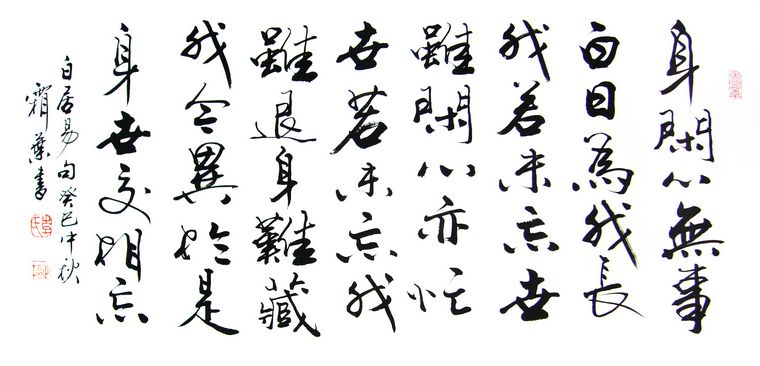 身閑心無事
白日為我長
我若未忘世
雖閑心亦忙
世若未忘我
雖退身難藏
我今異於是
身世交相忘
白居易句癸巳中秋
霜葉書